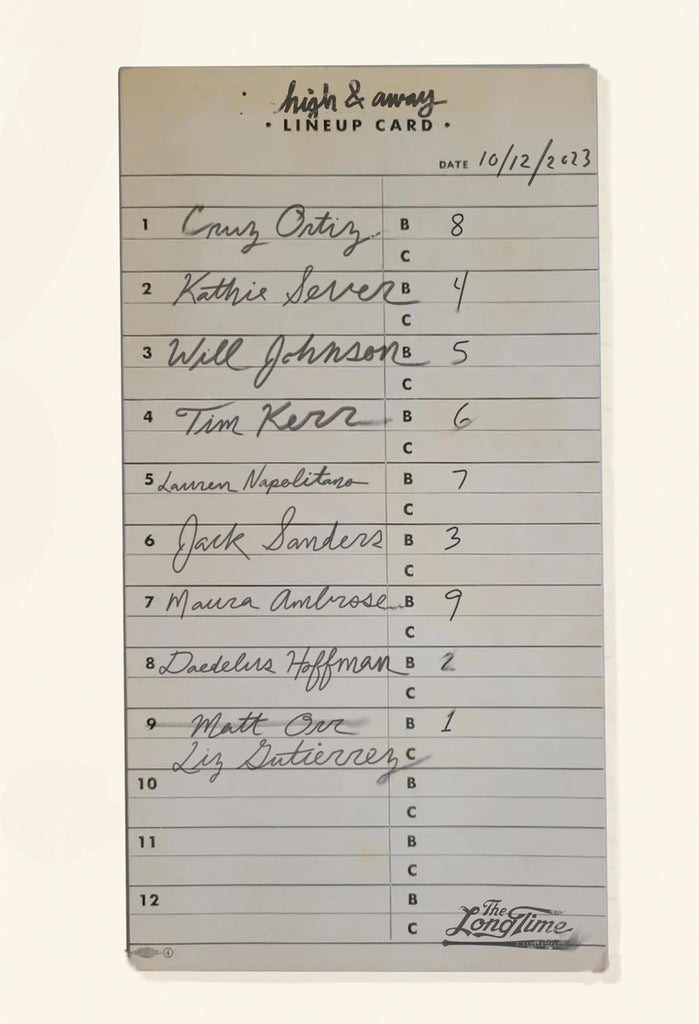 high & away
• LINEUP CARD •
DATE 10/12/2023
1 Cruz Ortiz B 8
C
2 Kathie Sever B 4
C
3 Will Johnson B 5
C
4 Tim Kerr B 6
C
5 Lauren Napolitano B 7
C
6 Jack Sanders B 3
C
7 Maura Ambrose B 9
C
8 Daedelus Hoffman B 2
C
9 Matt Orr B 1
Liz Gutierrez C
10 B
C
11 B
C
12 B
C
The
Long Time
4